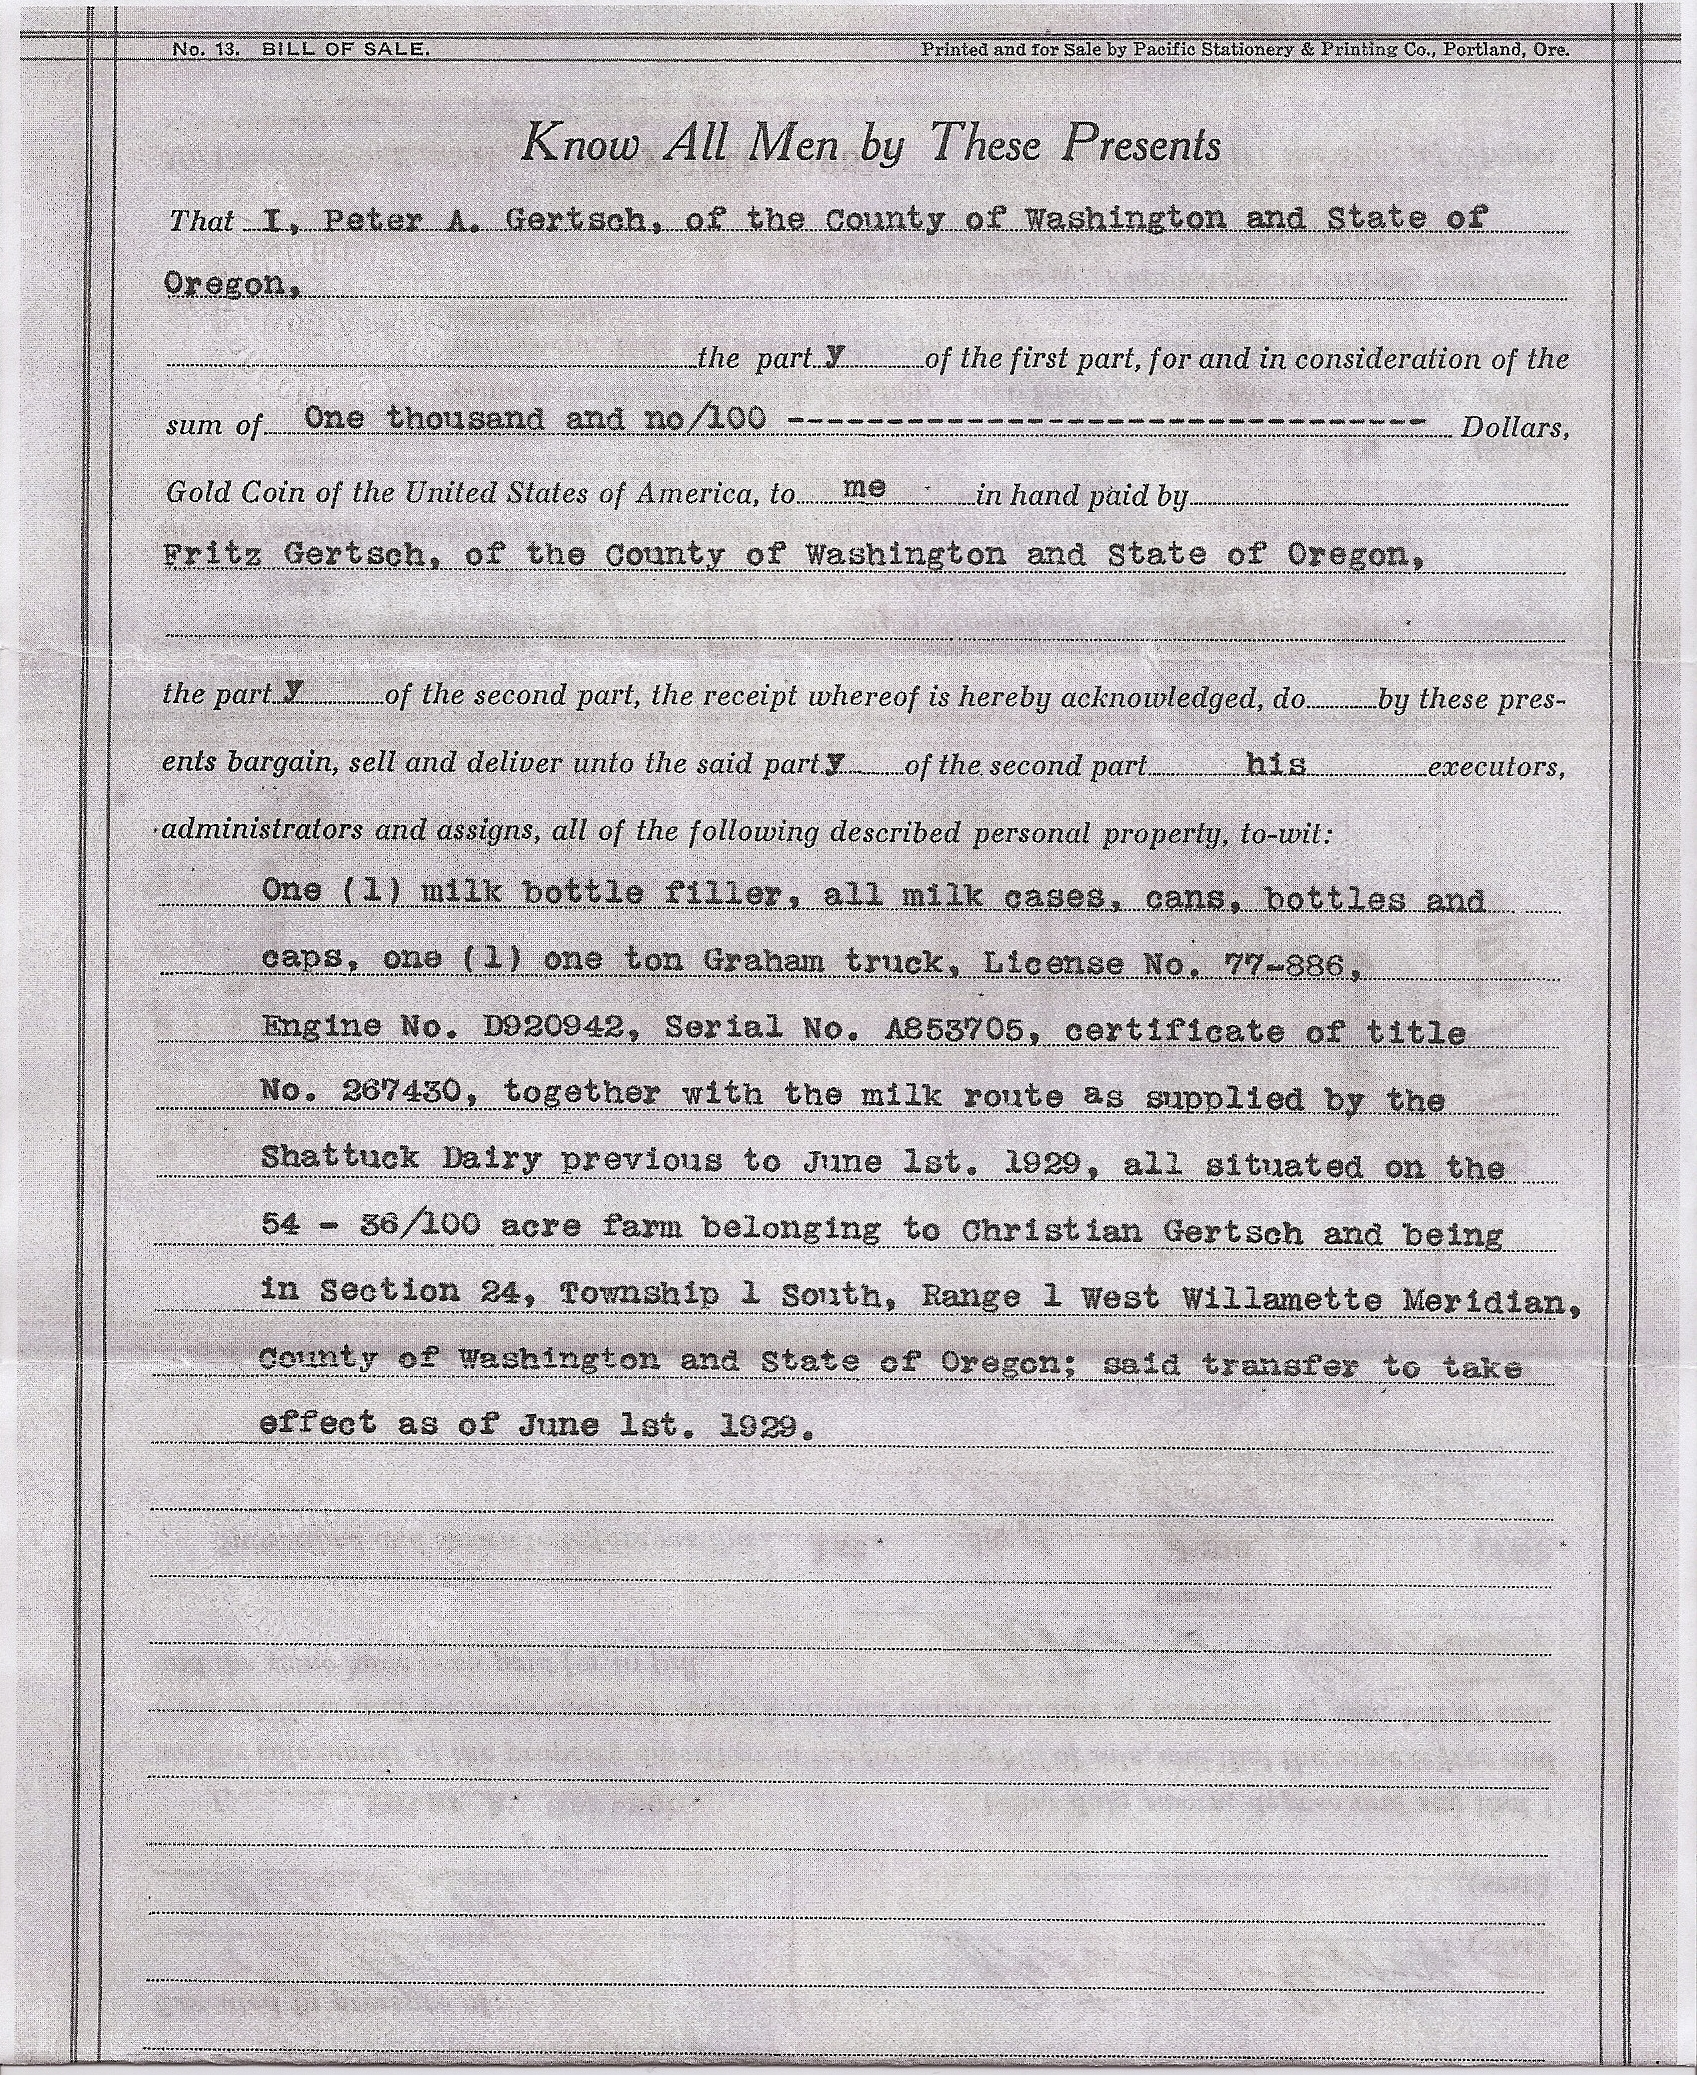 No. 13. BILL OF SALE. Printed and for Sale by Pacific Stationery & Printing Co., Portland, Ore.
Know All Men by These Presents
That I, Peter A. Gertsch, of the County of Washington and State of
Oregon,
the party of the first part, for and in consideration of the
sum of One thousand and no/100 -------------------------------- Dollars,
Gold Coin of the United States of America, to me in hand paid by
Fritz Gertsch, of the County of Washington and State of Oregon,
the party of the second part, the receipt whereof is hereby acknowledged, do by these pres-
ents bargain, sell and deliver unto the said party of the second part his executors,
administrators and assigns, all of the following described personal property, to-wit:
One (1) milk bottle filler, all milk cases, cans, bottles and
caps, one (1) one ton Graham truck, License No. 77-886,
Engine No. D920942, Serial No. A853705, certificate of title
No. 267430, together with the milk route as supplied by the
Shattuck Dairy previous to June 1st. 1929, all situated on the
54 - 36/100 acre farm belonging to Christian Gertsch and being
in Section 24, Township 1 South, Range 1 West Willamette Meridian,
County of Washington and State of Oregon; said transfer to take
effect as of June 1st. 1929.